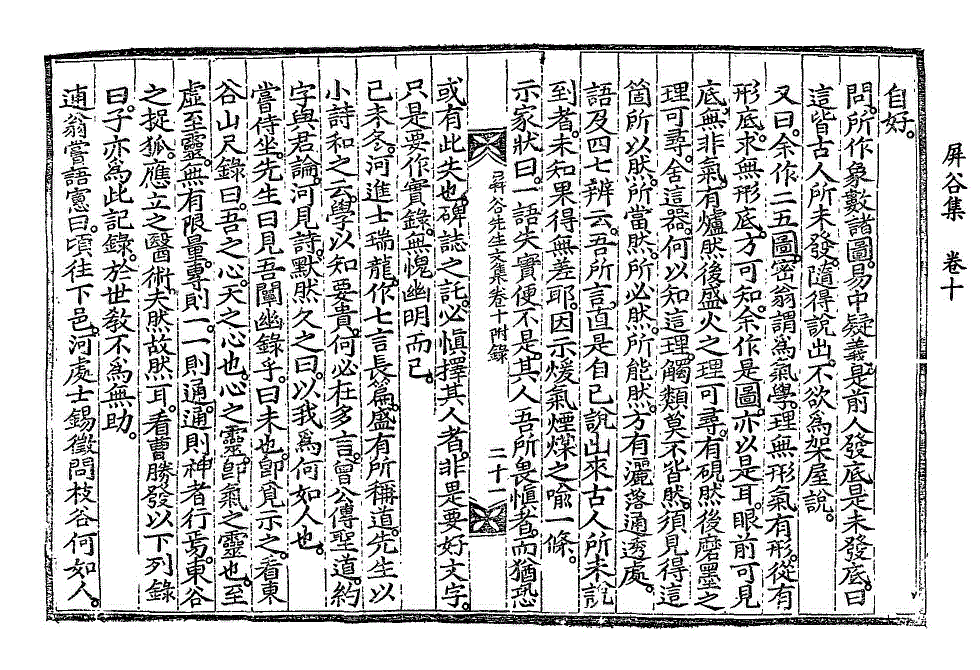 屏谷集　卷十
自好。
問。所作象數諸圖。易中疑義。是前人發底。是未發底。曰
這皆古人所未發。隨得說出。不欲爲架屋說。
又曰。余作二五圖。密翁謂爲氣學。理無形氣有形。從有
形底。求無形底。方可知。余作是圖。亦以是耳。眼前可見
底。無非氣。有爐然後盛火之理可尋。有硯然後磨墨之
理可尋。舍這器。何以知這理。觸類莫不皆然。須見得這
箇所以然。所當然。所必然。所能然。方有灑落通透處。
語及四七辨云。吾所言。直是自己說出來古人所未說
到者。未知果得無差耶。因示煖氣煙煤之喩一條。
示家狀曰。一語失實。便不是。其人吾所畏愼者。而猶恐
屛谷先生文集卷十附錄　二十一
或有此失也。碑誌之託。必愼擇其人者。非是要好文字。
只是要作實錄。無愧幽明而已。
己未冬。河進士瑞龍。作七言長篇。盛有所稱道。先生以
小詩和之云。學以知要貴。何必在多言。曾公傳聖道。約
字與君論。河見詩。默然久之曰。以我爲何如人也。
嘗侍坐。先生曰見吾闡幽錄乎。曰未也。卽覓示之。看東
谷山尺錄曰。吾之心。天之心也。心之靈。卽氣之靈也。至
虛至靈。無有限量。專則一。一則通。通則神者行焉。東谷
之捉狐。應立之醫術。夫然故然耳。看曹勝發以下列錄
曰。子亦爲此記錄。於世敎不爲無助。
逋翁嘗語憲曰。頃往下邑。河處士錫徵問枝谷何如人。